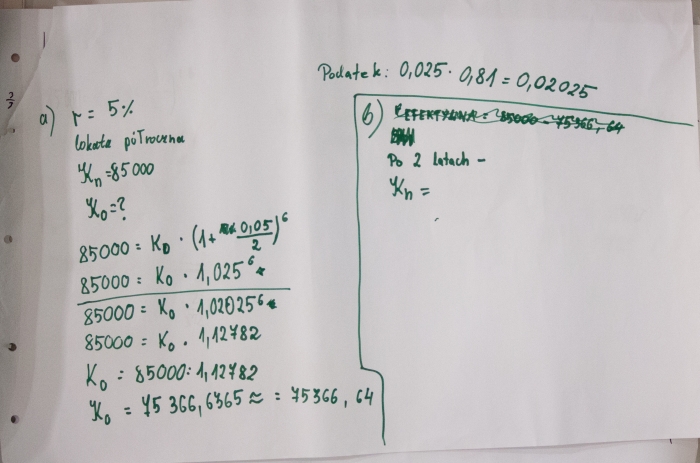 Podatek: 0,025 · 0,81 = 0,02025
a) r = 5%
lokata półroczna
Kn = 85 000
K0 = ?
85000 = K0 · (1+ 0,05/2)^6
85000 = K0 · 1,025^6
85000 = K0 · 1,02025^6
85000 = K0 · 1,12782
K0 = 85000 : 1,12782
K0 = 75 366,6365 ≈ = 75366,64
b) EFEKTYWNA = 85000 - 75366,64
Po 2 latach -
Kn =